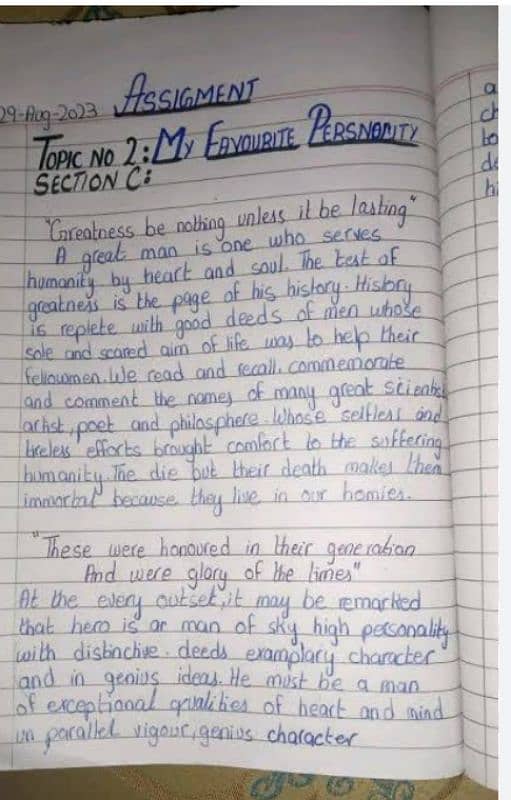 ASSIGMENT
29-Aug-2023
TOPIC NO 2: MY FAVOURITE PERSNORITY
SECTION C:
"Greatness be nothing unless it be lasting"
A great man is one who serves
humanity by heart and soul. The test of
greatness is the page of his history. History
is replete with good deeds of men whose
sole and scared aim of life was to help their
fellowmen. We read and recall, commemorate
and comment the names of many great scientist
artist, poet and philosphere. Whose selfless and
tireless efforts brought comfort to the suffering
humanity. The die but their death makes them
immortal because they live in our homies.
"These were honoured in their generation
And were glory of the times"
At the every outset, it may be remarked
that hero is ar man of sky high personality
with distinctive deeds examplary character
and in genius ideas. He must be a man
of exceptional qualities of heart and mind
un parallel vigour, genius character
a
ch
bo
de
hi